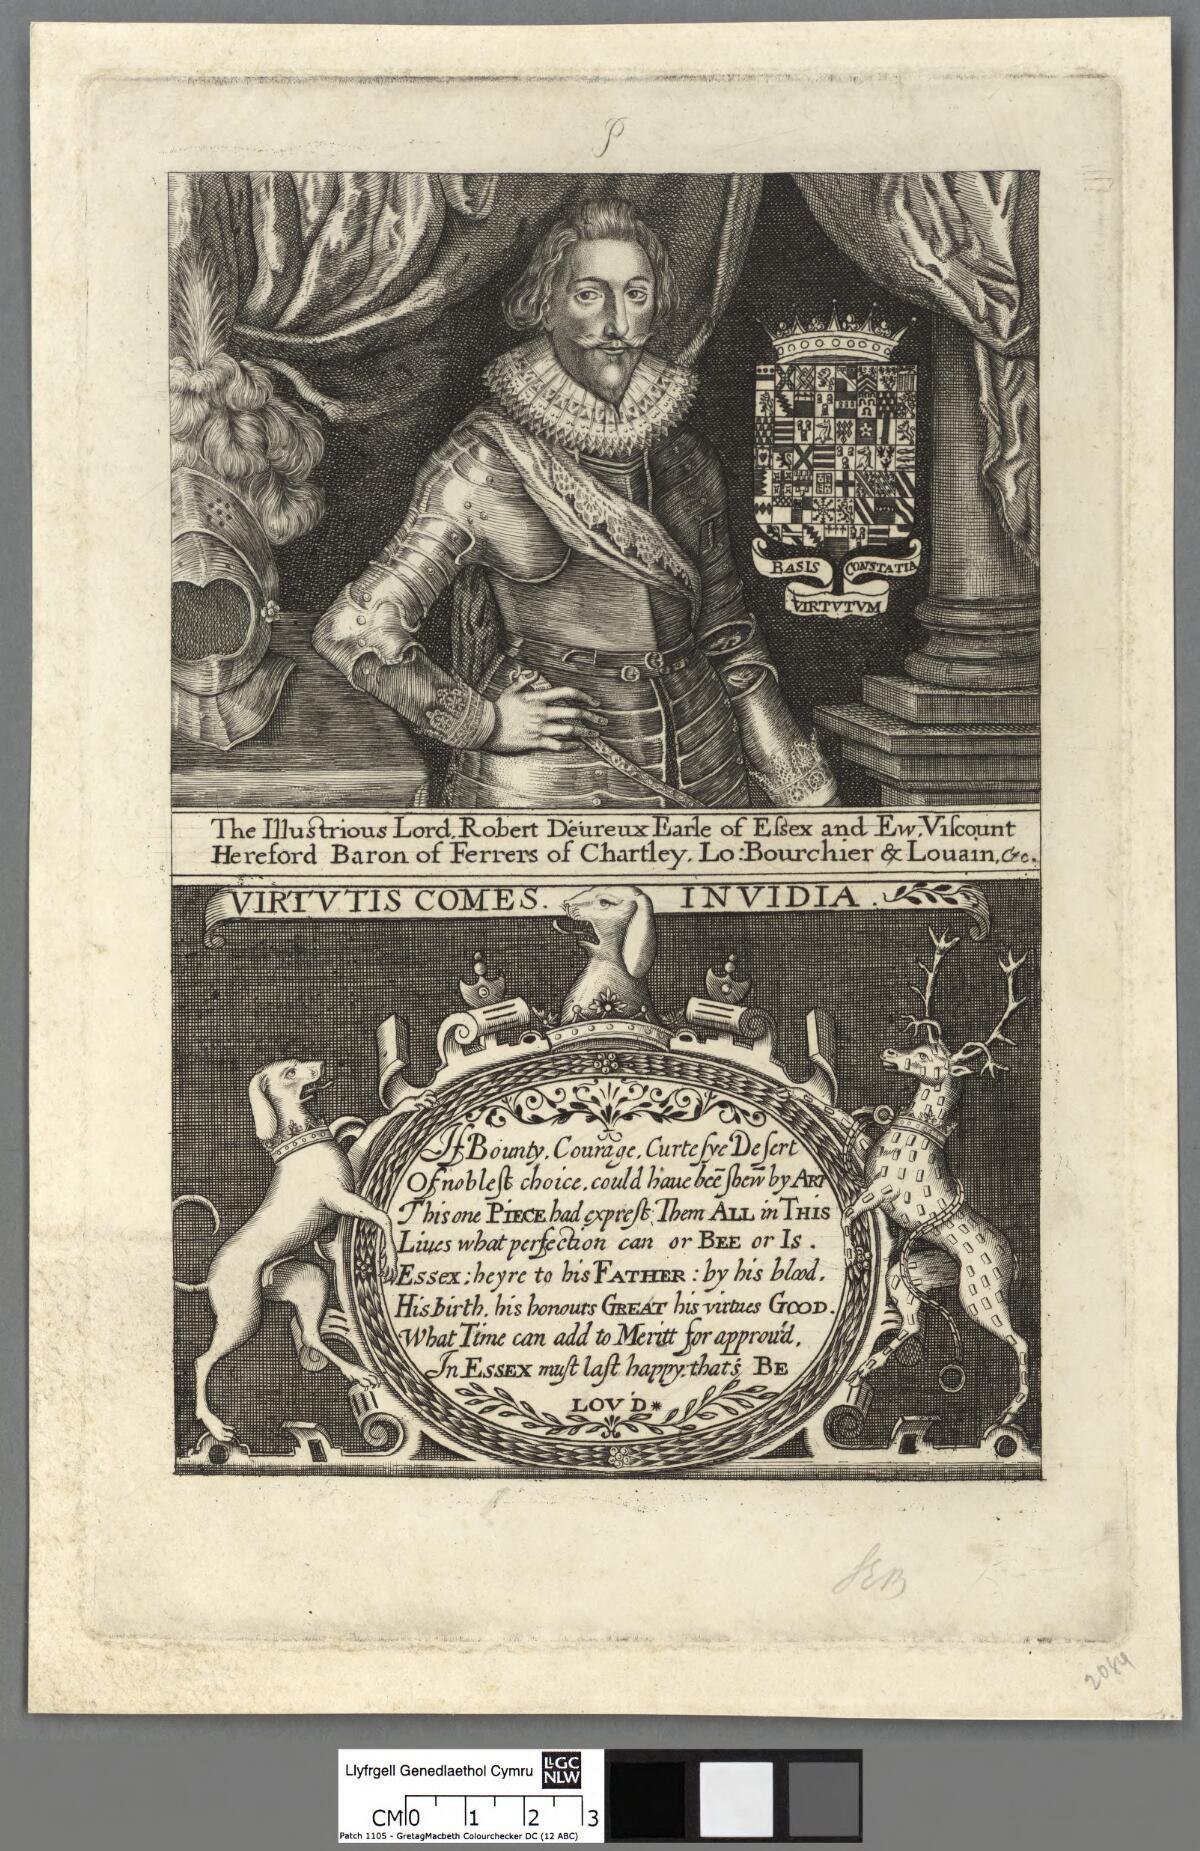 P
BASIS CONSTATIA
VIRTVTVM
The Illustrious Lord, Robert Deúreux Earle of Essex and Ew, Viscount
Hereford Baron of Ferrers of Chartley, Lo: Bourchier & Louain, &c.
VIRTVTIS COMES. INVIDIA.
If Bounty, Courage, Curtesye Desert
Of noblest choice, could haue beē shew̄ by ART
This one PIECE had exprest Them ALL in THIS
Liues what perfection can or BEE or Is.
ESSEX; heyre to his FATHER: by his blood,
His birth, his honours GREAT his virtues GOOD.
What Time can add to Meritt for approu'd,
In ESSEX must last happy, that's BE
LOV'D*
2084
Llyfrgell Genedlaethol Cymru LLGC NLW
CM 0 1 2 3
Patch 1105 - GretagMacbeth Colourchecker DC (12 ABC)